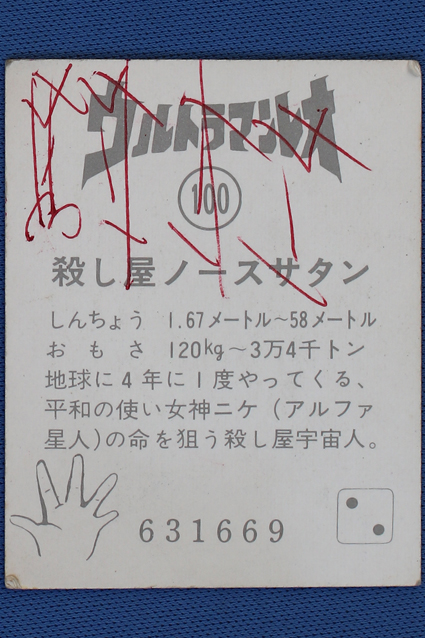 ウルトラマンレオ
100
殺し屋ノースサタン
しんちょう 1.67メートル〜58メートル
おもさ 120kg〜3万4千トン
地球に4年に1度やってくる、
平和の使い女神ニケ(アルファ
星人)の命を狙う殺し屋宇宙人。
631669